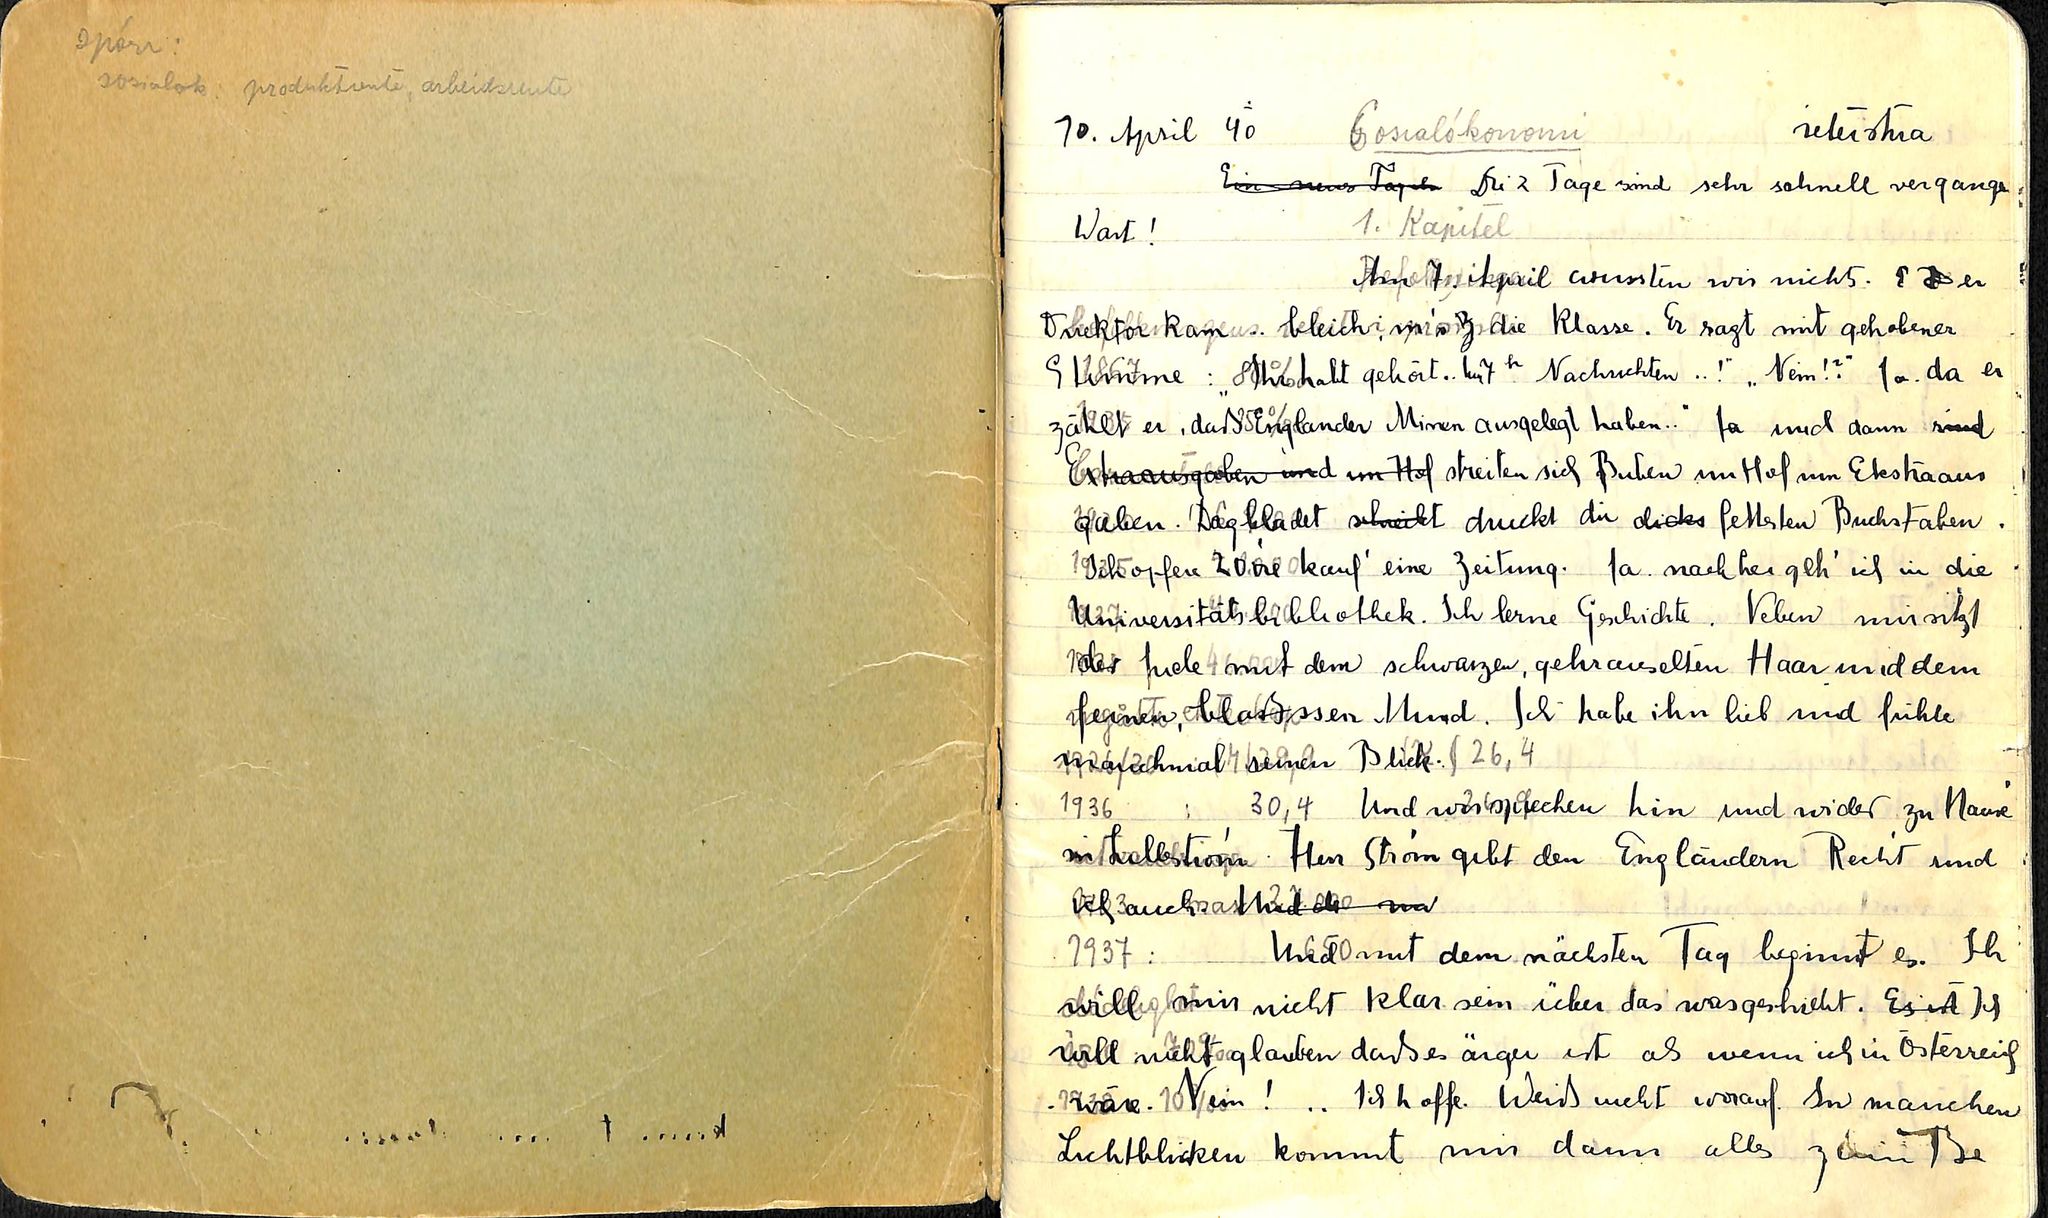 spörr:
sosialøk. produktrente, arbeidsrente
10. April 40 Sosialökonomi
Ein neues Tageb Die 2 Tage sind sehr schnell vergange
Wart! 1. Kapitel
Am 7. April wussten wir nichts. Der
Direktor kam .. bleich, in die Klasse. Er sagt mit gehobener
Stimme: „Ihr habt gehört.. 7h Nachrichten ..!" „Nein!?" Ja. da er
zählt er, daß Engländer Minen ausgelegt haben.." Ja und dann sind
Extraausgaben und im Hof streiten sich Buben im Hof um Ekstraaus
gaben. Dagbladet schreibt druckt die dicks fettesten Buchstaben.
Ich opfere 20 öre kauf' eine Zeitung. Ja. nachher geh' ich in die
Universitätsbibliothek. Ich lerne Geschichte. Neben mir sitzt
der Jude mit dem schwarzen, gekrauselten Haar und dem
feinen, blassen Mund. Ich habe ihn lieb und fühle
manchmal seinen Blick. 26,4
1936 : 30,4 Und wir sprechen hin und wider zu Hause
in Lillestrøm. Herr Ström gibt den Engländern Recht und
ich auch. Und
1937: Und mit dem nächsten Tag beginnt es. Ich
will mir nicht klar sein über das was geschieht. Es ist Ich
will nicht glauben daß es ärger ist als wenn ich in Österreich
wäre. Nein! .. Ich hoffe. Weiß nicht worauf. In manchen
Lichtblicken kommt mir dann alles zum Be